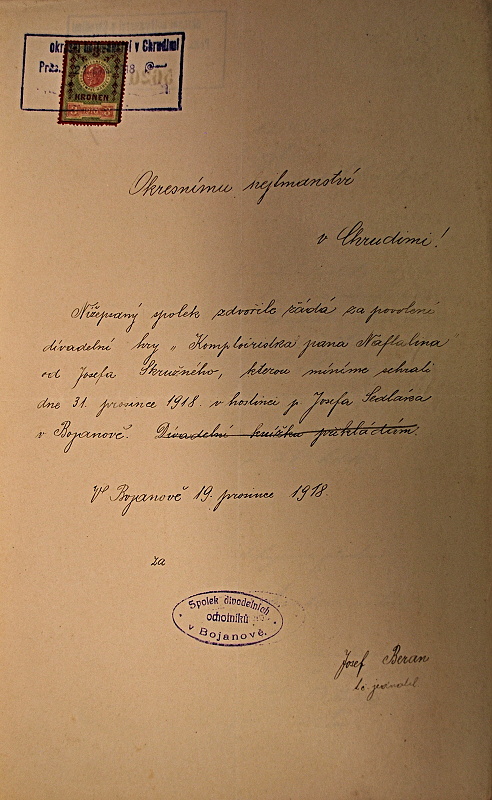 v Chrudimi
KRONEN
Okresnímu hejtmanství
v Chrudimi!
Nížepsaný spolek zdvořile žádá za povolení
divadelní hry „Komptoiristka pana Naftalina
od Josefa Skružného, kterou míníme sehráti
dne 31. prosince 1918. v hostinci p. Josefa Sedláčka
v Bojanově. Divadelní knížku přikládám.
V Bojanově 19. prosince 1918.
za
Spolek divadelních
ochotníků
v Bojanově.
Josef Beran
t. č. jednatel